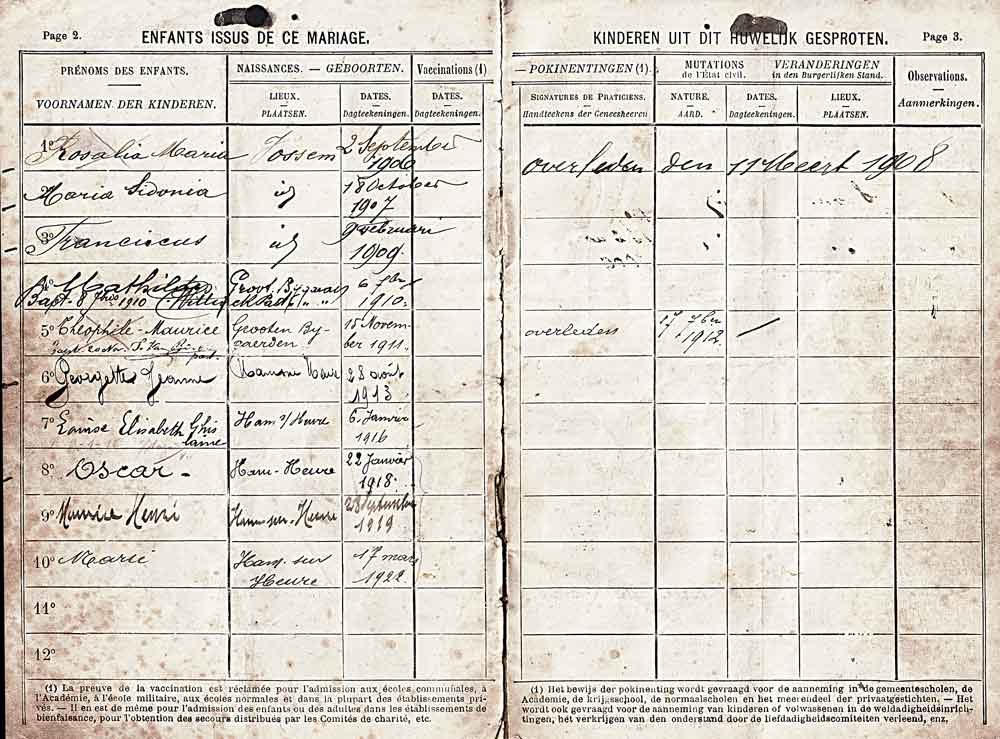 Page 2.
ENFANTS ISSUS DE CE MARIAGE.
PRÉNOMS DES ENFANTS.
VOORNAMEN DER KINDEREN.
NAISSANCES. — GEBOORTEN.
LIEUX.
PLAATSEN.
DATES.
Dagteekeningen.
Vaccinations (1)
DATES.
Dagteekeningen.
1° Rosalia Maria Tossem 2 September
1906
Maria Sidonia id 18 October
1907
3° Franciscus id 9 februari
1909.
4° Mathilde 6
Bapt. 8 1910 1910.
5° Théophile-Maurice Grooten By- 15 Novem-
gaerden ber 1911.
6° Georgette Jeanne 28 août
1913
7° Louise Elisabeth Ghis Ham s/ Heure 6 Janvier
laine 1916
8° Oscar - Ham-Heure 22 Janvier
1918.
9° Maurice Henri Ham-sur-Heure 28 Septembre
1919
10° Marie Ham. sur 17 mars
Heure 1922.
11°
12°
(1) La preuve de la vaccination est réclamée pour l'admission aux écoles communales, à
l'Académie, à l'école militaire, aux écoles normales et dans la plupart des établissements pri-
vés. — Il en est de même pour l'admission des enfants ou des adultes dans les établissements de
bienfaisance, pour l'obtention des secours distribués par les Comités de charité, etc.
KINDEREN UIT DIT HUWELIJK GESPROTEN.
Page 3.
— POKINENTINGEN (1).
SIGNATURES DE PRATICIENS.
Handteekens der Geneesheeren
MUTATIONS
de l'État civil.
VERANDERINGEN
in den Burgerlijken Stand.
NATURE.
AARD.
DATES.
Dagteekeningen.
LIEUX.
PLAATSEN.
Observations.
Aanmerkingen.
overleden den 11 Meert 1908
overleden 17 7ber
1912.
(1) Het bewijs der pokinenting wordt gevraagd voor de aanneming in de gemeentescholen, de
Academie, de krijgsschool, de normaalscholen en het meerendeel der privaatgestichten. — Het
wordt ook gevraagd voor de aanneming van kinderen of volwassenen in de weldadigheidsinrich-
tingen, het verkrijgen van den onderstand door de liefdadigheidscomiteiten verleend, enz.